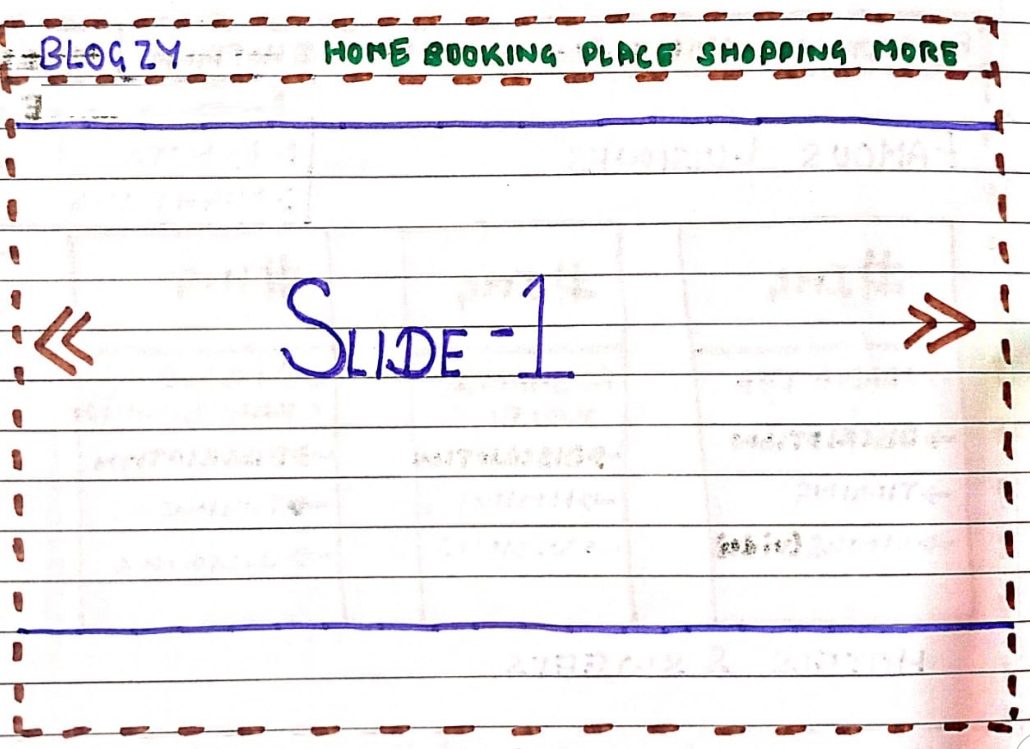 BLOGZY HOME BOOKING PLACE SHOPPING MORE
« SLIDE-1 »